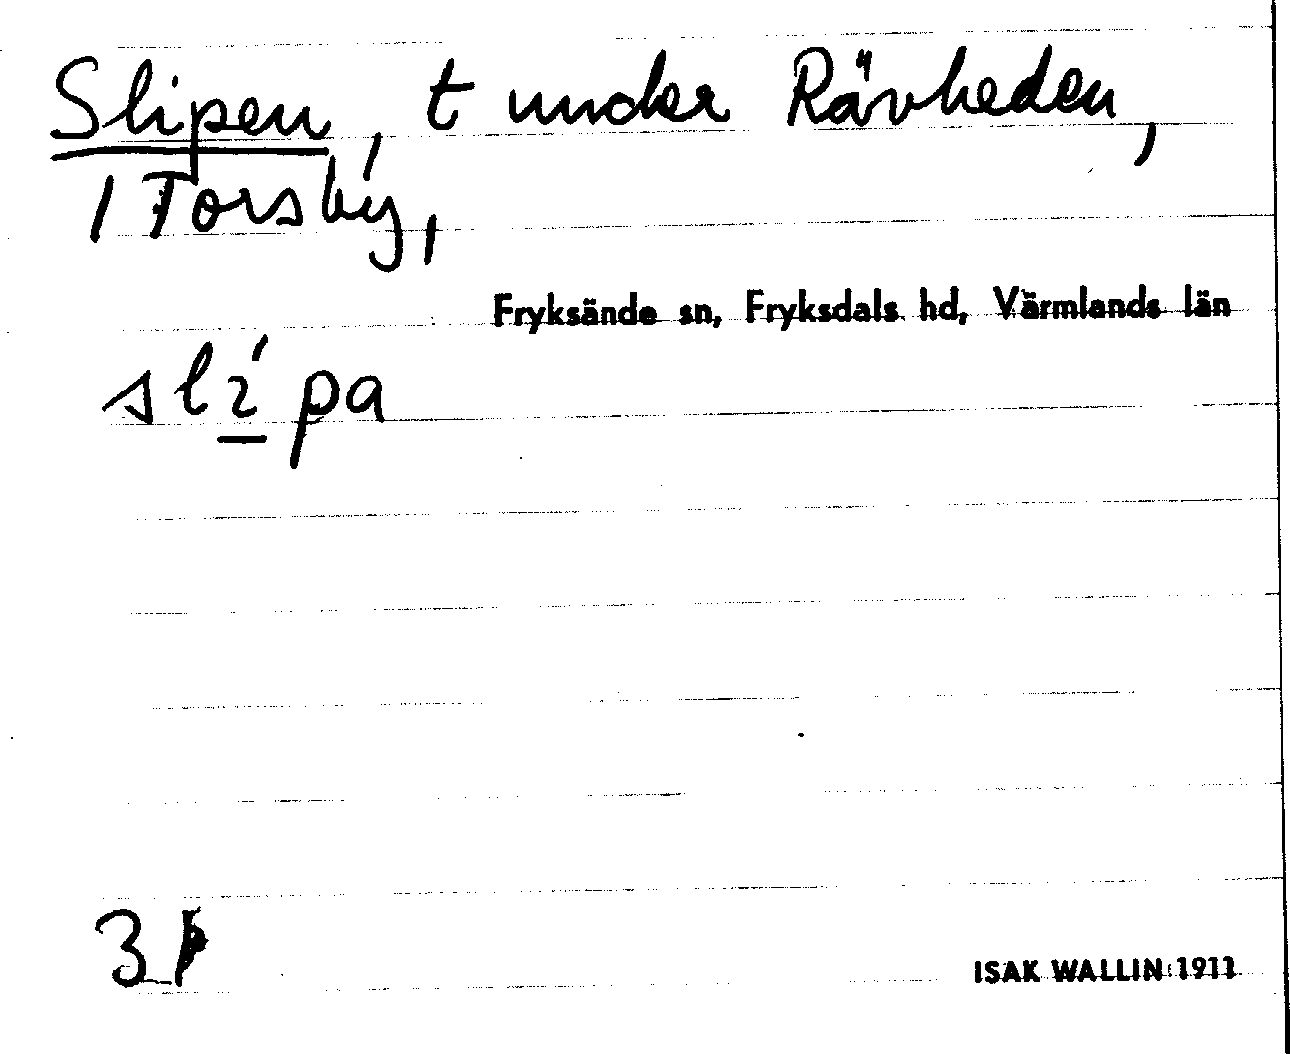 Slipen, t under Rävheden,
i Torsby,
Fryksände sn, Fryksdals hd, Värmlands län
slí̲pa
3
ISAK WALLIN 1911